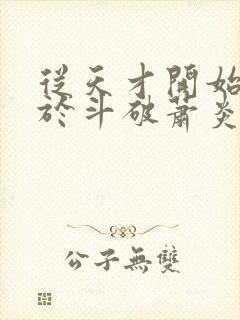 從天才開始
於斗破蕭炎
公子無雙